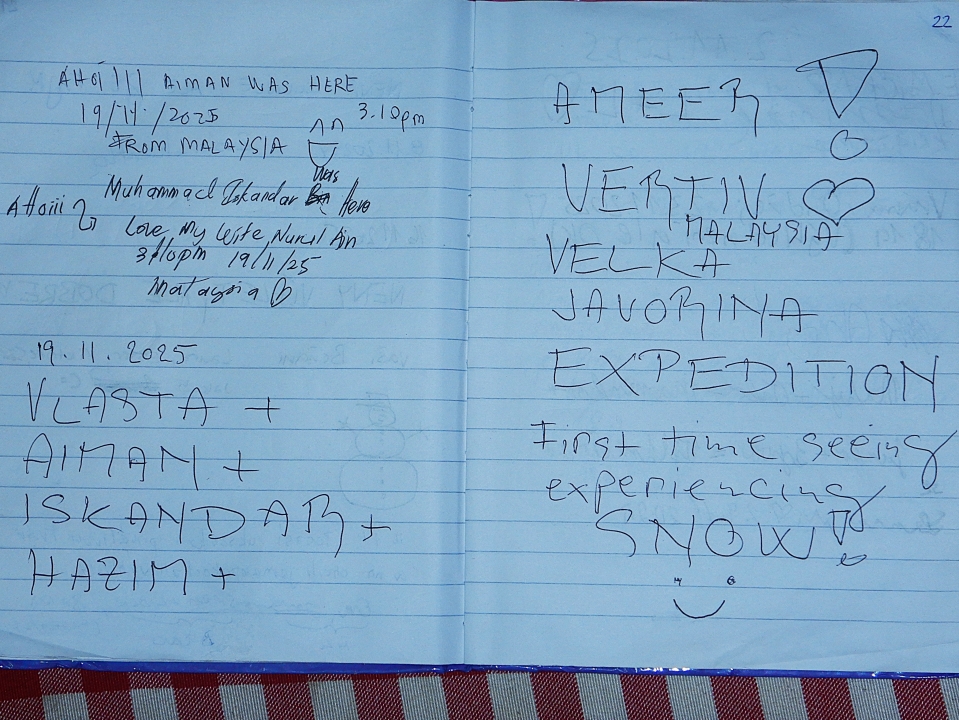 AHOI!!! AIMAN WAS HERE
19/11/2025 3.10pm
FROM MALAYSIA
was
AHoiii Muhammad Iskandar Here
Love My Wife, Nurul Ain
3:10pm 19/11/25
Malaysia
19.11.2025
VLASTA +
AIMAN +
ISKANDAR +
HAZIM +
22
AMEER!
VERTIV
MALAYSIA
VELKA
JAVORINA
EXPEDITION
First time seeing
experiencing
SNOW!